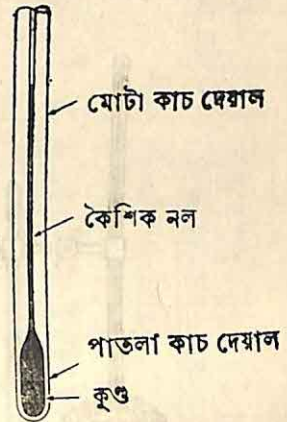 মোটা কাচ দেয়াল
কৈশিক নল
পাতলা কাচ দেয়াল
কুণ্ড